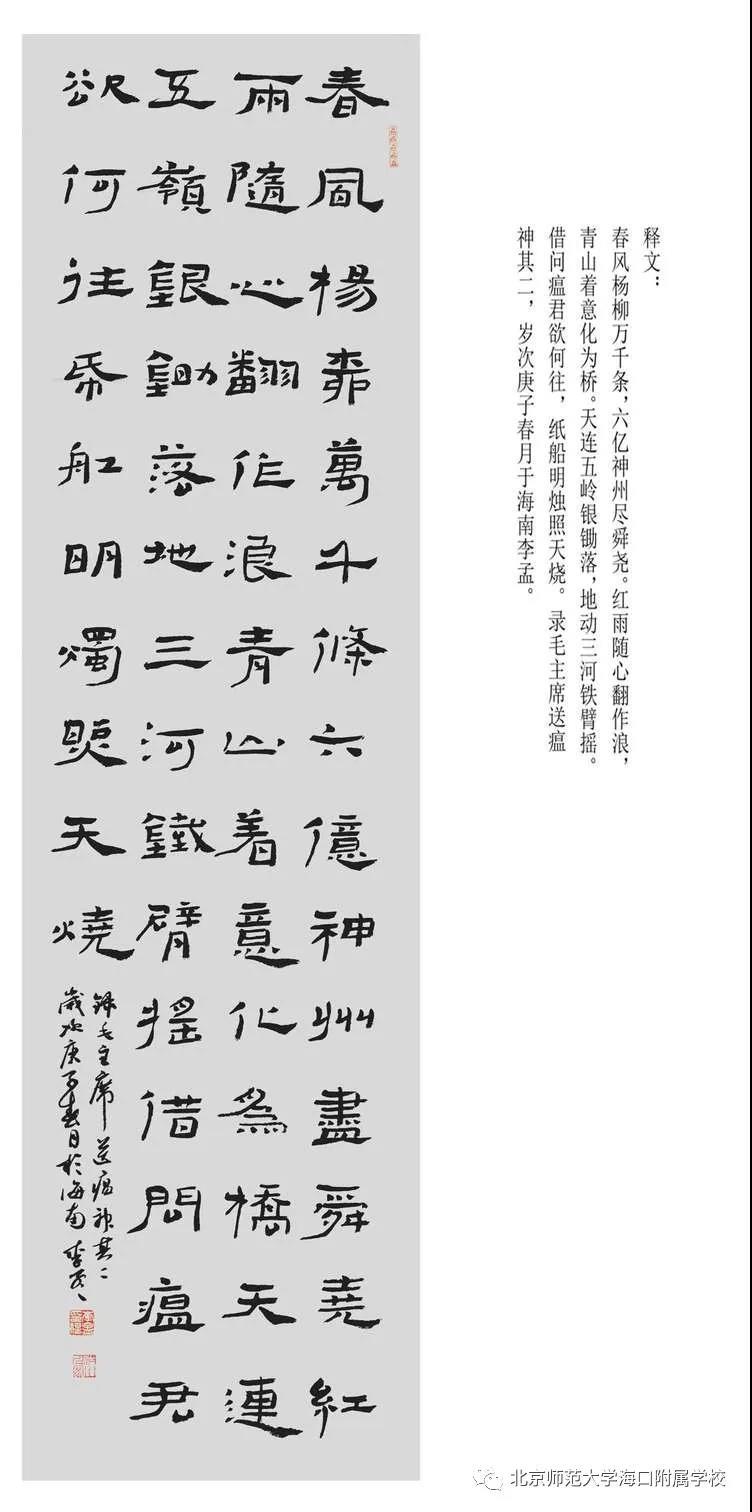 春風楊桺萬千條六億神州盡舜堯紅
雨隨心翻作浪青山着意化為橋天連
五嶺銀鋤落地三河鐵臂搖借問瘟君
欲何往帋舩明燭照天燒
錄毛主席送瘟神其二
歲次庚子春月於海南李孟
释文：
春风杨柳万千条，六亿神州尽舜尧。红雨随心翻作浪，
青山着意化为桥。天连五岭银锄落，地动三河铁臂摇。
借问瘟君欲何往，纸船明烛照天烧。录毛主席送瘟
神其二，岁次庚子春月于海南李孟。
北京师范大学海口附属学校